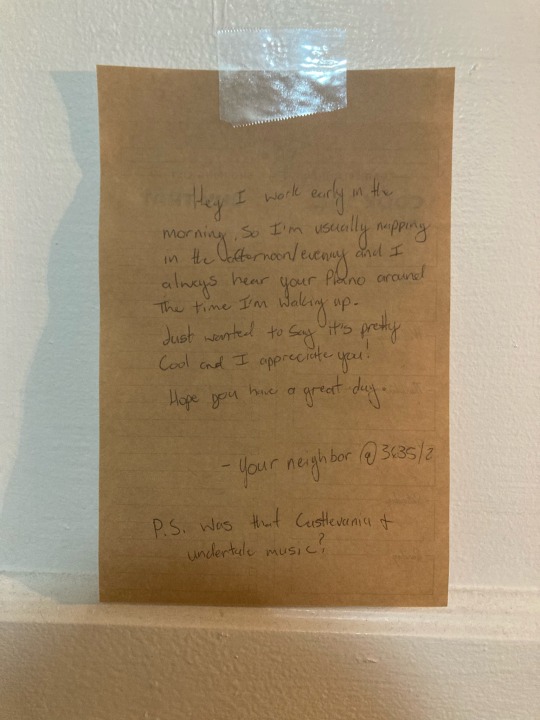 Hey I work early in the
morning. So I'm usually napping
in the afternoon/evening and I
always hear your Piano around
The time I'm waking up.
Just wanted to say it's pretty
Cool and I appreciate you!
Hope you have a great day.
- your neighbor @ 3635/2
P.S. was that Castlevania &
undertale music?